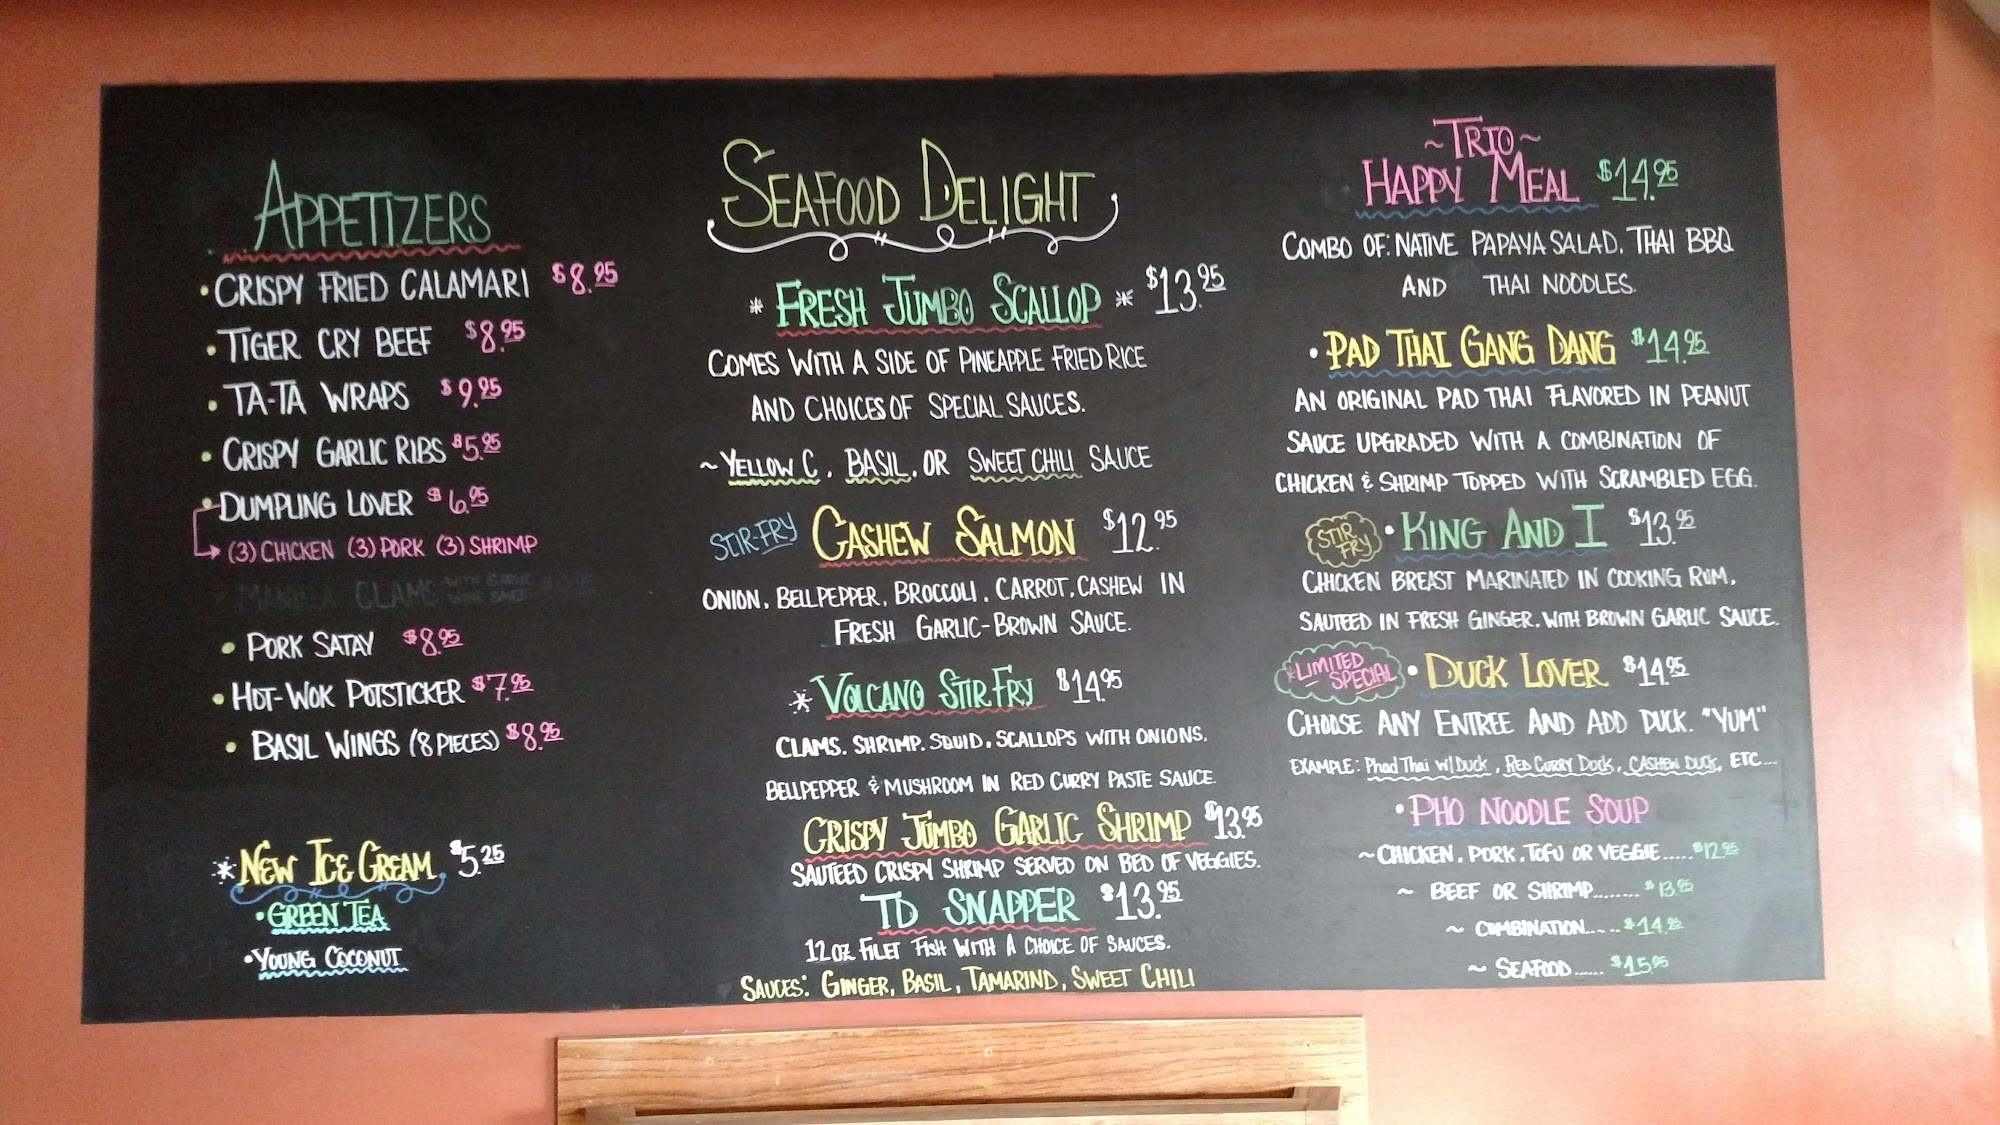 APPETIZERS
• CRISPY FRIED CALAMARI $8.95
• TIGER CRY BEEF $8.95
• TA-TA WRAPS $9.95
• CRISPY GARLIC RIBS $5.95
• DUMPLING LOVER $6.95
(3) CHICKEN (3) PORK (3) SHRIMP
MANILA CLAMS WITH GARLIC WINE SAUCE
• PORK SATAY $8.95
• HOT-WOK POTSTICKER $7.95
• BASIL WINGS (8 PIECES) $8.95
* NEW ICE CREAM $5.25
• GREEN TEA
• YOUNG COCONUT
SEAFOOD DELIGHT
* FRESH JUMBO SCALLOP * $13.95
COMES WITH A SIDE OF PINEAPPLE FRIED RICE
AND CHOICES OF SPECIAL SAUCES.
~ YELLOW C, BASIL, OR SWEET CHILI SAUCE
STIR-FRY CASHEW SALMON $12.95
ONION, BELLPEPPER, BROCCOLI, CARROT, CASHEW IN
FRESH GARLIC-BROWN SAUCE.
* VOLCANO STIR FRY $14.95
CLAMS. SHRIMP. SQUID, SCALLOPS WITH ONIONS,
BELLPEPPER & MUSHROOM IN RED CURRY PASTE SAUCE.
CRISPY JUMBO GARLIC SHRIMP $13.95
SAUTEED CRISPY SHRIMP SERVED ON BED OF VEGGIES.
TD SNAPPER $13.95
12 OZ FILET FISH WITH A CHOICE OF SAUCES.
SAUCES: GINGER, BASIL, TAMARIND, SWEET CHILI
~TRIO~
HAPPY MEAL $14.95
COMBO OF: NATIVE PAPAYA SALAD, THAI BBQ
AND THAI NOODLES.
• PAD THAI GANG DANG $14.95
AN ORIGINAL PAD THAI FLAVORED IN PEANUT
SAUCE UPGRADED WITH A COMBINATION OF
CHICKEN & SHRIMP TOPPED WITH SCRAMBLED EGG.
STIR FRY • KING AND I $13.95
CHICKEN BREAST MARINATED IN COOKING RUM,
SAUTEED IN FRESH GINGER, WITH BROWN GARLIC SAUCE.
*LIMITED SPECIAL • DUCK LOVER $14.95
CHOOSE ANY ENTREE AND ADD DUCK. "YUM"
EXAMPLE: Phad Thai W/ DUCK, RED CURRY DUCK, CASHEW DUCK, ETC....
• PHO NOODLE SOUP
~ CHICKEN, PORK, TOFU OR VEGGIE.....$12.95
~ BEEF OR SHRIMP........$13.95
~ COMBINATION.....$14.95
~ SEAFOOD......$15.95